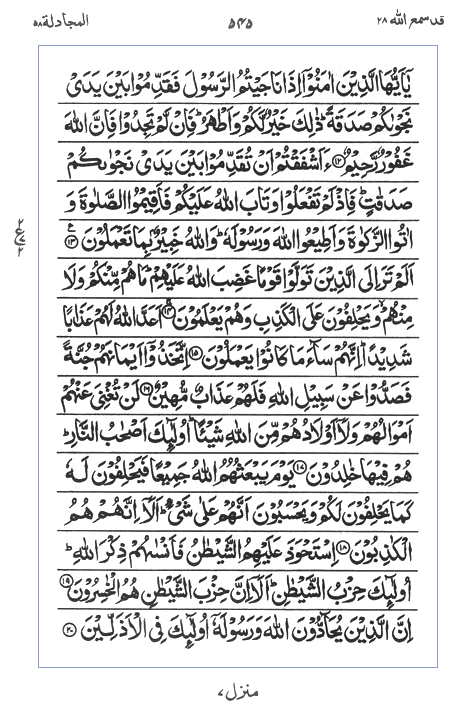 قد سمع الله ٢٨
٥٤٥
المجادلة ٥٨
يٰۤاَيُّهَا الَّذِيْنَ اٰمَنُوْۤا اِذَا نَاجَيْتُمُ الرَّسُوْلَ فَقَدِّمُوْا بَيْنَ يَدَىْ
نَجْوٰىكُمْ صَدَقَةً ؕ ذٰلِكَ خَيْرٌ لَّكُمْ وَاَطْهَرُ ؕ فَاِنْ لَّمْ تَجِدُوْا فَاِنَّ اللّٰهَ
غَفُوْرٌ رَّحِيْمٌ ﴿۱۲﴾ ءَاَشْفَقْتُمْ اَنْ تُقَدِّمُوْا بَيْنَ يَدَىْ نَجْوٰىكُمْ
صَدَقٰتٍ ؕ فَاِذْ لَمْ تَفْعَلُوْا وَتَابَ اللّٰهُ عَلَيْكُمْ فَاَقِيْمُوا الصَّلٰوةَ وَ
اٰتُوا الزَّكٰوةَ وَاَطِيْعُوا اللّٰهَ وَرَسُوْلَهٗ ؕ وَاللّٰهُ خَبِيْرٌۢ بِمَا تَعْمَلُوْنَ ﴿۱۳﴾
اَلَمْ تَرَ اِلَى الَّذِيْنَ تَوَلَّوْا قَوْمًا غَضِبَ اللّٰهُ عَلَيْهِمْ ؕ مَا هُمْ مِّنْكُمْ وَلَا
مِنْهُمْ ۙ وَيَحْلِفُوْنَ عَلَى الْكَذِبِ وَهُمْ يَعْلَمُوْنَ ﴿۱۴﴾ اَعَدَّ اللّٰهُ لَهُمْ عَذَابًا
شَدِيْدًا ؕ اِنَّهُمْ سَآءَ مَا كَانُوْا يَعْمَلُوْنَ ﴿۱۵﴾ اِتَّخَذُوْۤا اَيْمَانَهُمْ جُنَّةً
فَصَدُّوْا عَنْ سَبِيْلِ اللّٰهِ فَلَهُمْ عَذَابٌ مُّهِيْنٌ ﴿۱۶﴾ لَنْ تُغْنِىَ عَنْهُمْ
اَمْوَالُهُمْ وَلَاۤ اَوْلَادُهُمْ مِّنَ اللّٰهِ شَيْئًا ؕ اُولٰٓئِكَ اَصْحٰبُ النَّارِ ؕ
هُمْ فِيْهَا خٰلِدُوْنَ ﴿۱۷﴾ يَوْمَ يَبْعَثُهُمُ اللّٰهُ جَمِيْعًا فَيَحْلِفُوْنَ لَهٗ
كَمَا يَحْلِفُوْنَ لَكُمْ وَيَحْسَبُوْنَ اَنَّهُمْ عَلٰى شَىْءٍ ؕ اَلَاۤ اِنَّهُمْ هُمُ
الْكٰذِبُوْنَ ﴿۱۸﴾ اِسْتَحْوَذَ عَلَيْهِمُ الشَّيْطٰنُ فَاَنْسٰىهُمْ ذِكْرَ اللّٰهِ ؕ
اُولٰٓئِكَ حِزْبُ الشَّيْطٰنِ ؕ اَلَاۤ اِنَّ حِزْبَ الشَّيْطٰنِ هُمُ الْخٰسِرُوْنَ ﴿۱۹﴾
اِنَّ الَّذِيْنَ يُحَآدُّوْنَ اللّٰهَ وَرَسُوْلَهٗۤ اُولٰٓئِكَ فِى الْاَذَلِّيْنَ ﴿۲۰﴾
٢
ع
٢
منزل ٧